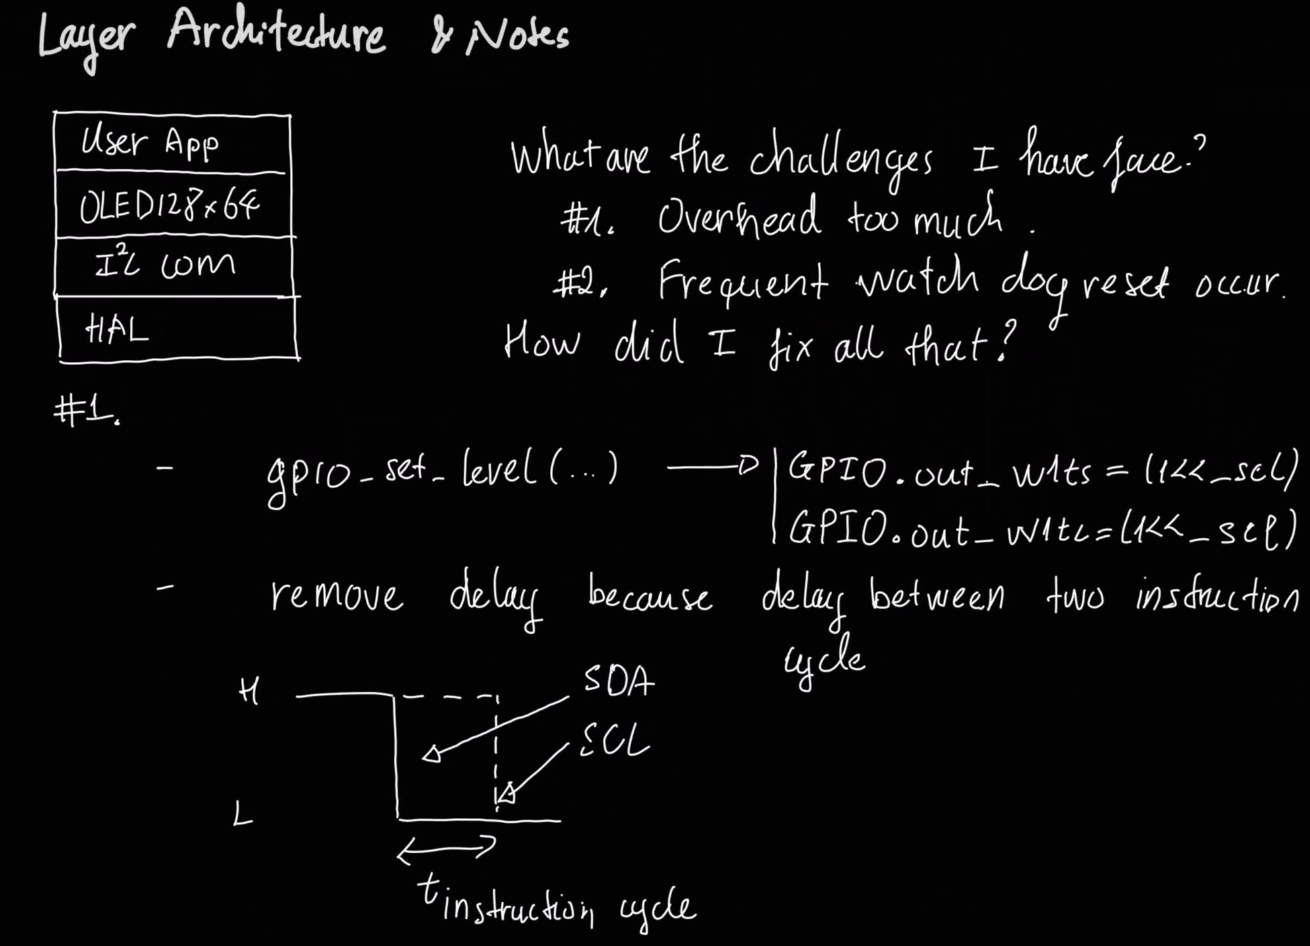 Layer Architecture & Notes
User App
OLED128x64
I²C com
HAL
What are the challenges I have face?
#1. Overhead too much.
#2. Frequent watch dog reset occur.
How did I fix all that?
#1.
- gpio_set_level(...) → GPIO.out_w1ts = (1<<_scl)
GPIO.out_w1tc=(1<<_scl)
- remove delay because delay between two instruction
cycle
H
SDA
SCL
L
t instruction cycle